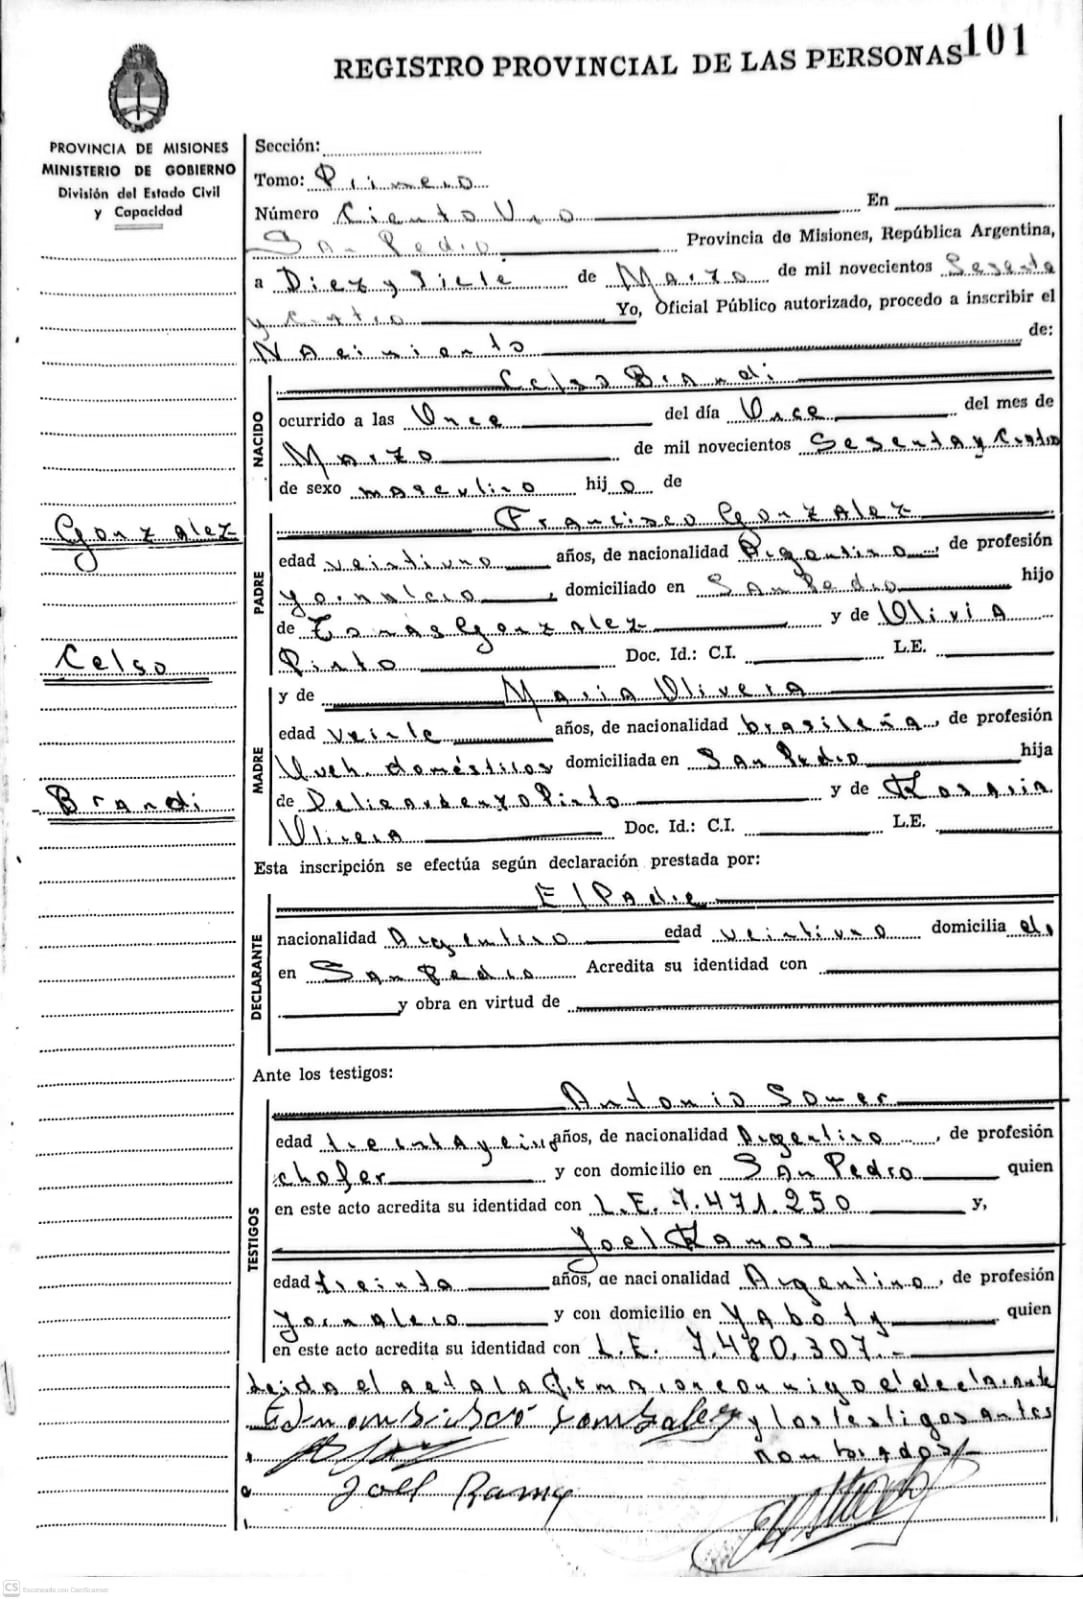 101
REGISTRO PROVINCIAL DE LAS PERSONAS
PROVINCIA DE MISIONES
MINISTERIO DE GOBIERNO
División del Estado Civil
y Capacidad
Gonzalez
Celso
Brandi
Sección:
Tomo: Primero
Número Ciento Uno En
San Pedro Provincia de Misiones, República Argentina,
a Diez y Siete de Marzo de mil novecientos Sesenta
y Cuatro Yo, Oficial Público autorizado, procedo a inscribir el
Nacimiento de:
NACIDO
Celso Brandi
ocurrido a las Once del día Once del mes de
Marzo de mil novecientos Sesenta y Cuatro
de sexo masculino hijo de
PADRE
Francisco Gonzalez
edad veintiuno años, de nacionalidad Argentino, de profesión
Jornalero, domiciliado en San Pedro hijo
de Tomás Gonzalez y de Olivia
Pinto Doc. Id.: C.I. L.E.
MADRE
y de Maria Olivera
edad veinte años, de nacionalidad brasileña, de profesión
Queh. domésticos domiciliada en San Pedro hija
de Pinto y de Rosaria
Olivera Doc. Id.: C.I. L.E.
Esta inscripción se efectúa según declaración prestada por:
DECLARANTE
El Padre
nacionalidad Argentino edad veintiuno domicilia do
en San Pedro Acredita su identidad con
y obra en virtud de
Ante los testigos:
TESTIGOS
Antonio Somer
edad años, de nacionalidad Argentino, de profesión
chofer y con domicilio en San Pedro quien
en este acto acredita su identidad con L.E. 7.471.250 y,
Joel Ramos
edad treinta años, de nacionalidad Argentino, de profesión
Jornalero y con domicilio en Yaboty quien
en este acto acredita su identidad con L.E. 7.480.307.-
Leida el acta la firman con conmigo el declarante
y los testigos antes
nombrados/-
Joel Ramos
CS Escaneado con CamScanner